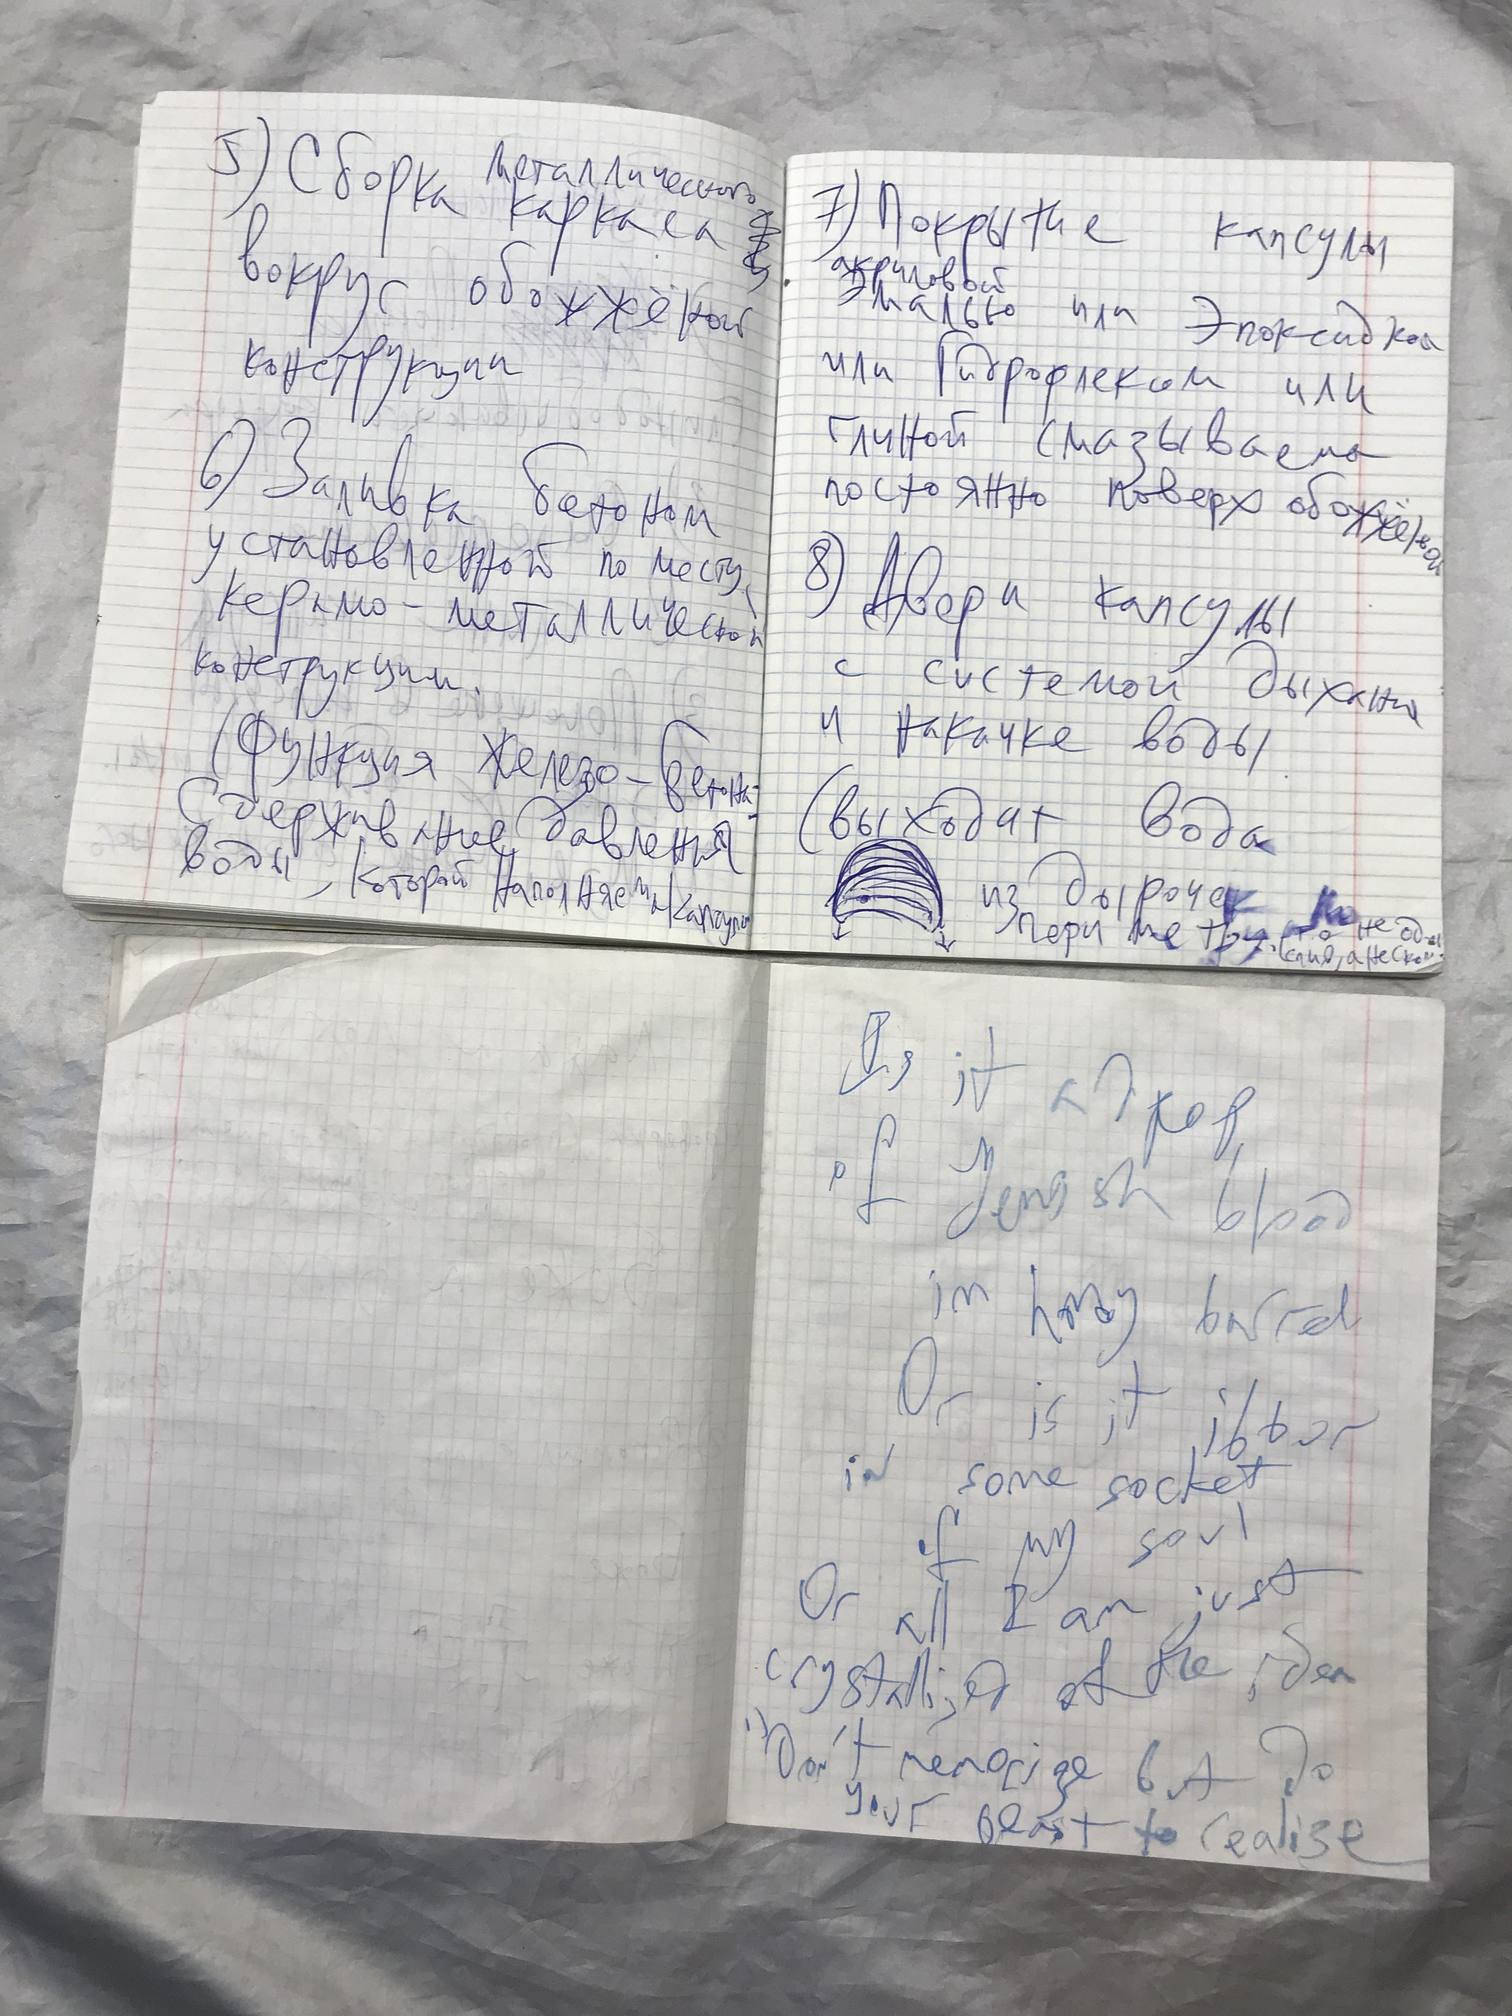 5) Сборка металлического
каркаса
вокруг обожжёной
конструкции
6) Заливка бетоном
установленной по месту
керамо-металлической
конструкции.
(Функция железо-бетона-
сдерживание давления
воды, которой наполняем капсулу
7) Покрытие капсулы
акриловой
эмалью или Эпоксидкой
или Гидрофлексом или
глиной смазываемо
постоянно поверх обожжёной
8) Двери капсулы
с системой дыхания
и накачке воды
(выходит вода
из дырочек по
периметру
Is it a drop
of Jewish blood
in honey barrel
Or is it ibbur
in some socket
of my soul
Or all I am just
crystallized of the idea
"Don't memorize but do
your beast to realise